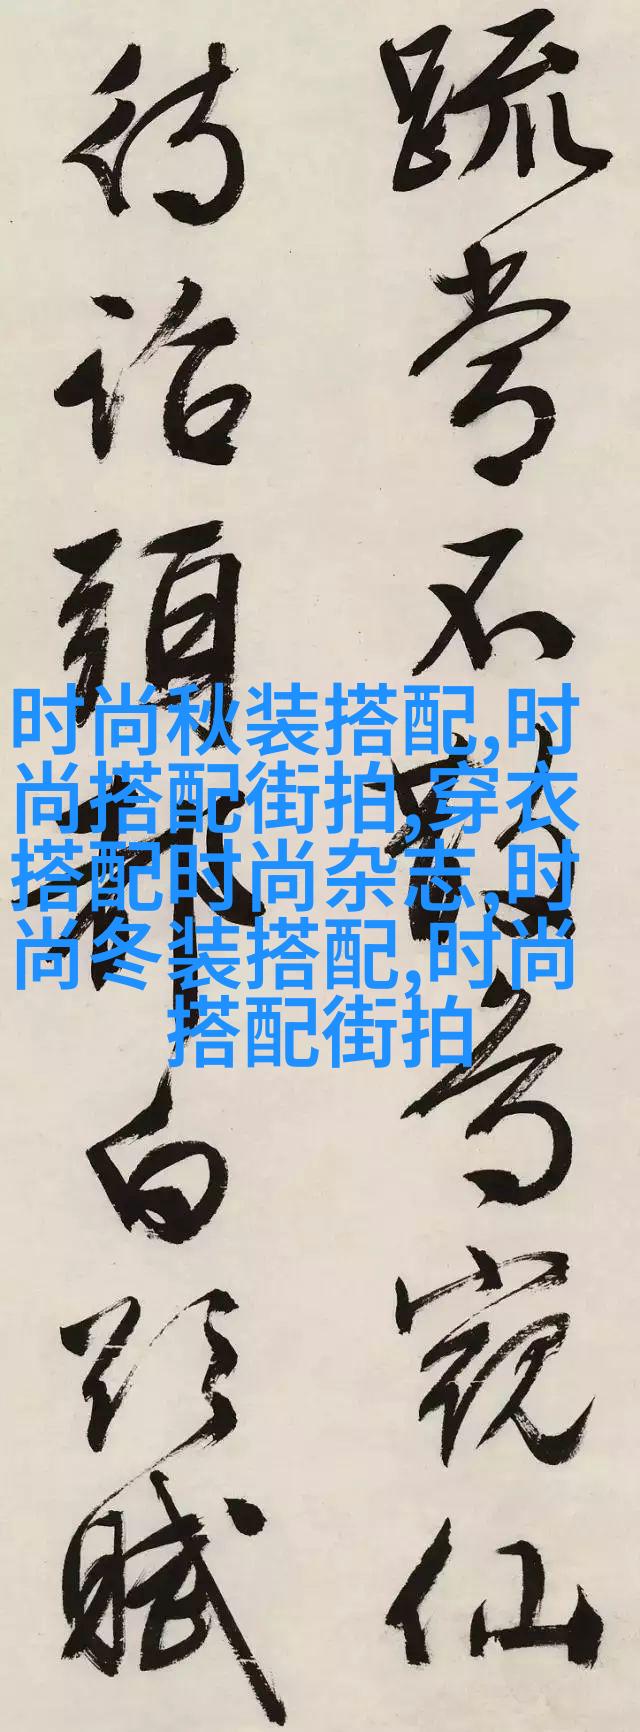 常不為仙
待詔頭白頭賦
时尚秋装搭配,时
尚搭配街拍,穿衣
搭配时尚杂志,时
尚冬装搭配,时尚
搭配街拍